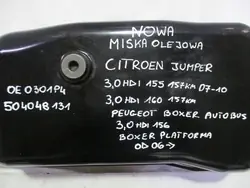 NOWA
MISKA OLEJOWA
CITROEN JUMPER
OE 0301P4
504048131
3,0 HDI 155 157KM 07-10
3,0 HDI 160 157KM
PEUGEOT BOXER AUTOBUS
3,0 HDI 156
BOXER PLATFORMA
OD 06->